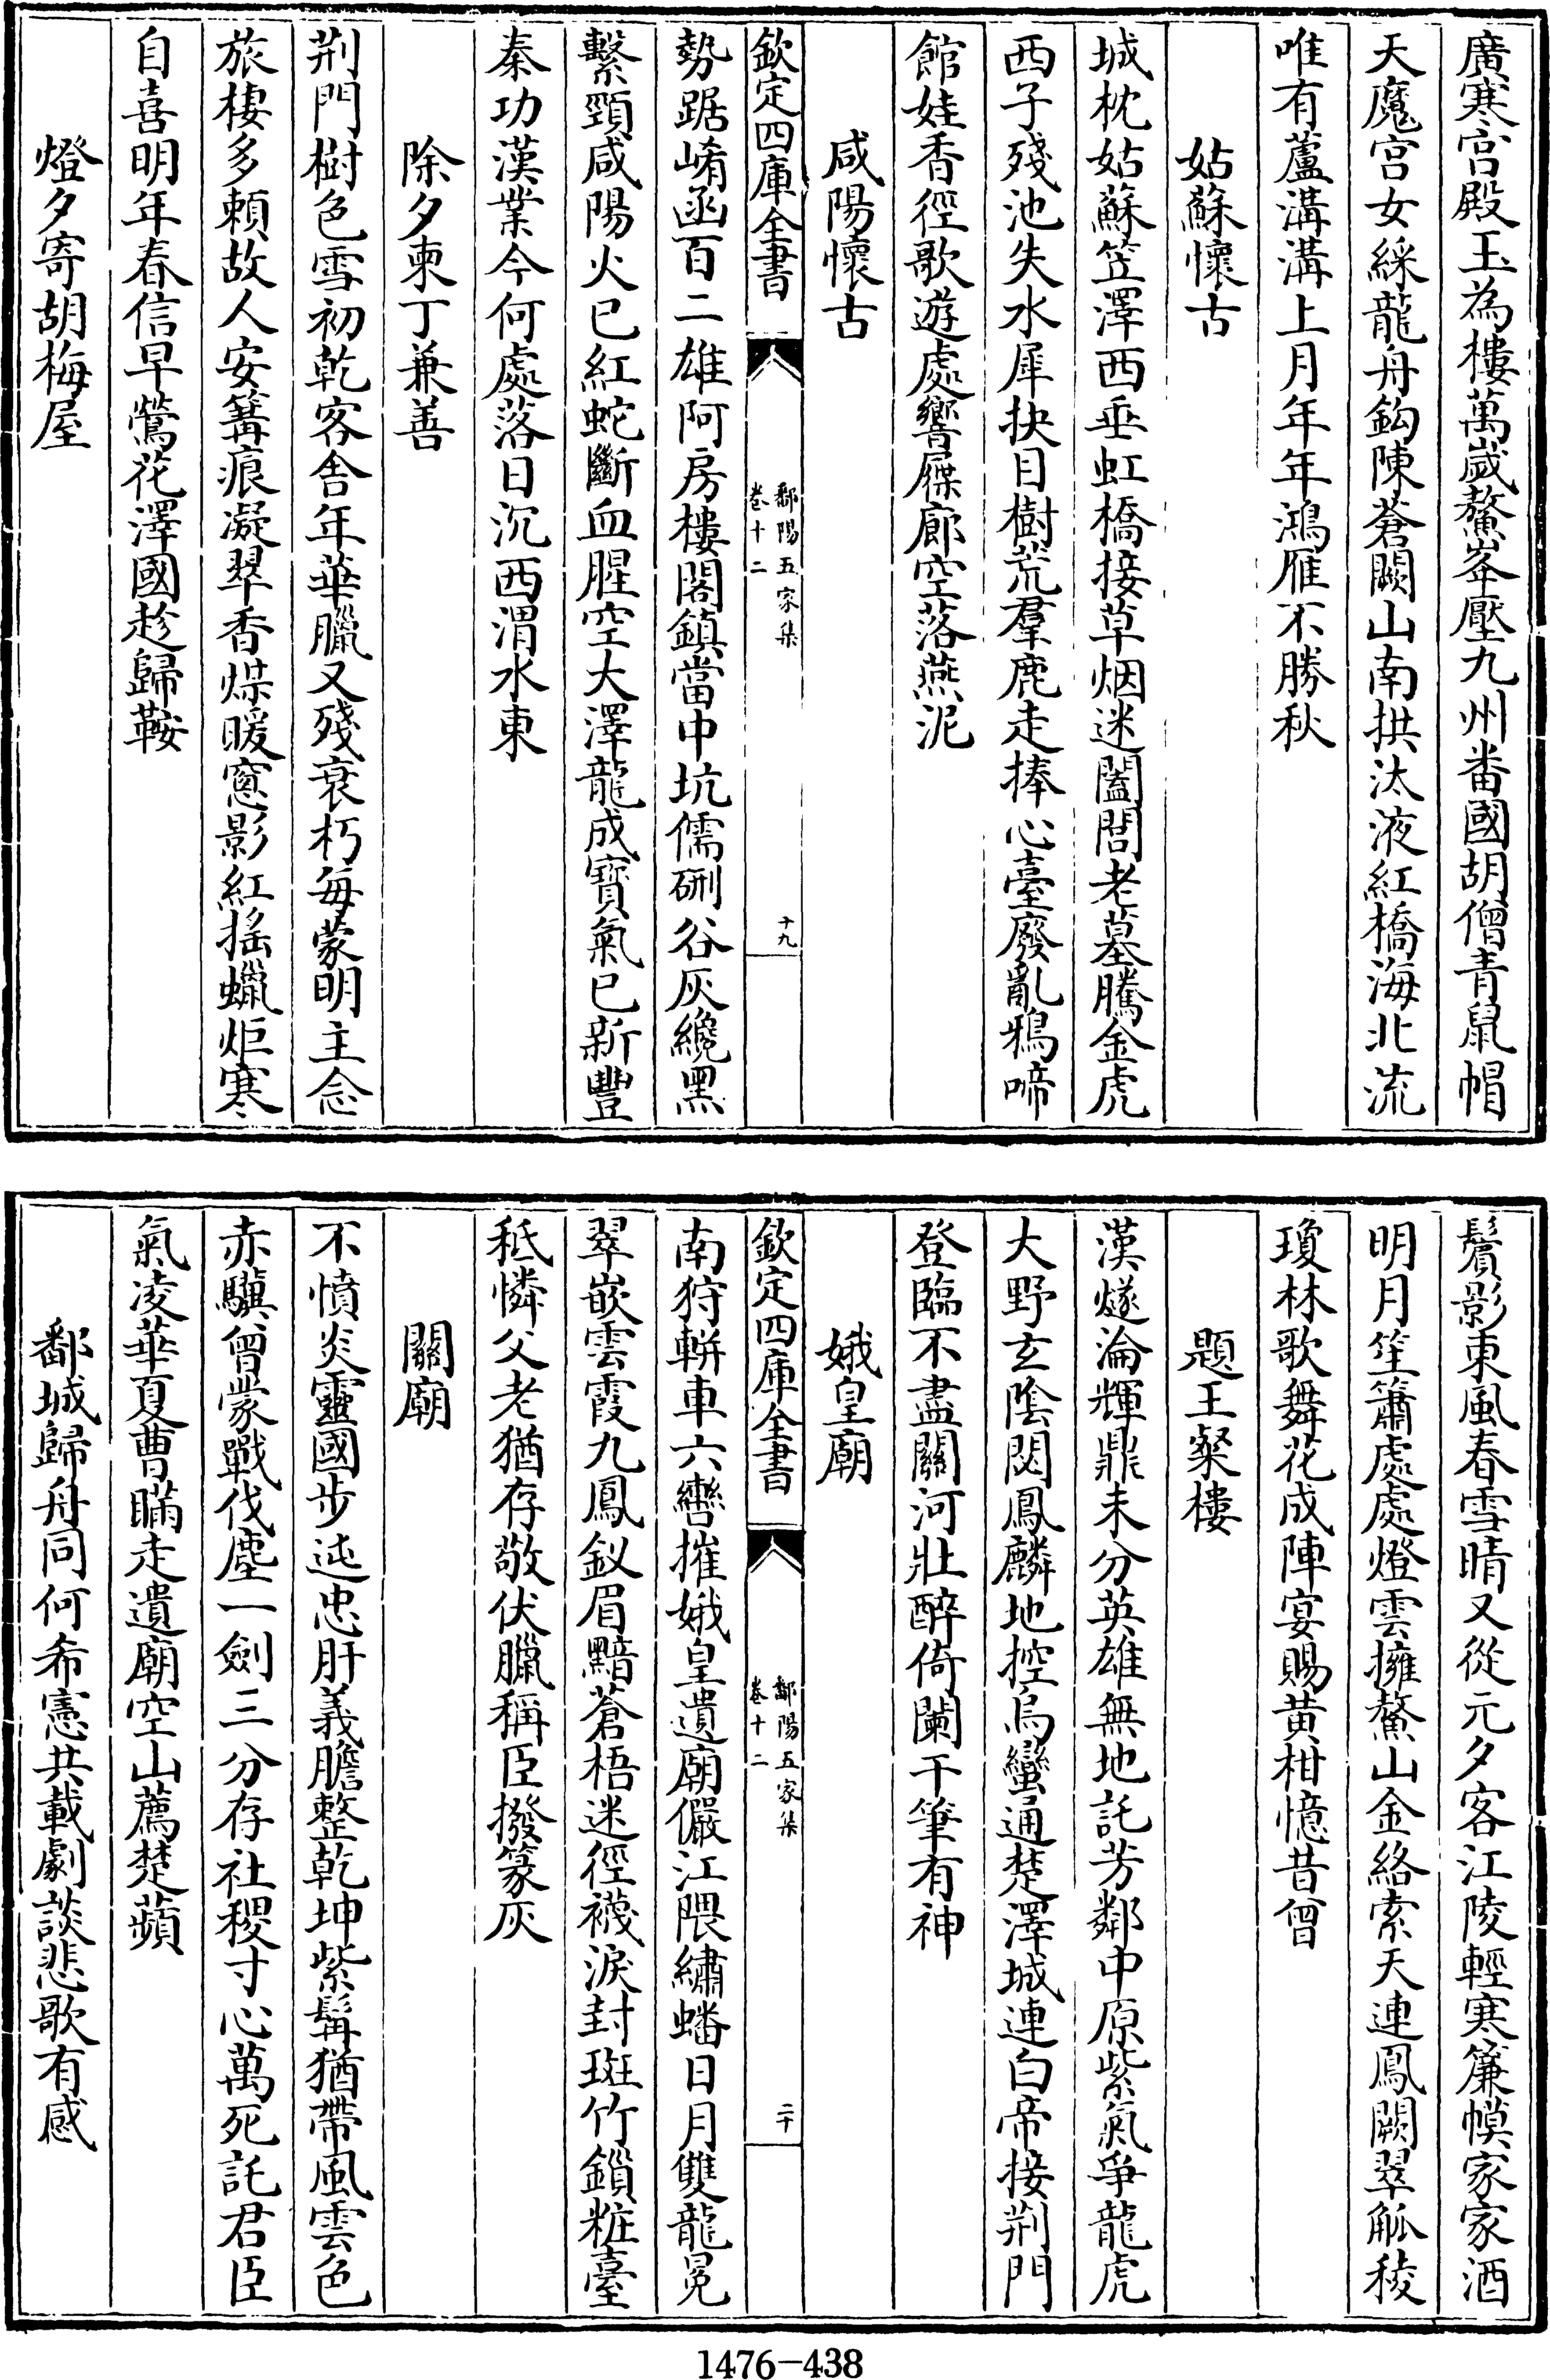 廣寒宫殿玉為樓萬歲鰲峯壓九州畨國胡僧青鼠帽
天魔宫女綵龍舟鈎陳蒼闕山南拱汰液紅橋海北流
唯有蘆溝溝上月年年鴻雁不勝秋
姑蘇懷古
城枕姑蘇笠澤西垂虹橋接草烟迷闔閭老墓騰金虎
西子殘池失水犀抉目樹荒羣鹿走捧心臺廢亂鴉啼
館娃香徑歌遊處響屧廊空落燕泥
咸陽懷古
欽定四庫全書
鄱陽五家集
卷十二
十九
勢踞崤函百二雄阿房樓閣鎮當中坑儒硎谷灰纔黑
繫頸咸陽火已紅蛇斷血腥空大澤龍成寳氣已新豐
秦功漢業今何處落日沉西渭水東
除夕柬丁兼善
荆門樹色雪初乾客舍年華臘又殘衰朽每蒙明主念
旅棲多頼故人安篝痕凝翠香煤暖窻影紅摇蠟炬寒
自喜明年春信早鶯花澤國趁歸鞍
燈夕寄胡梅屋
鬢影東風春雪晴又從元夕客江陵輕寒簾幙家家酒
明月笙簫處處燈雲擁鰲山金絡索天連鳳闕翠觚稜
瓊林歌舞花成陣宴賜黄柑憶昔曾
題王粲樓
漢燧淪輝鼎未分英雄無地託芳鄰中原紫氣爭龍虎
大野玄陰閟鳳麟地控烏蠻通楚澤城連白帝接荆門
登臨不盡關河壯醉倚闌干筆有神
娥皇廟
欽定四庫全書
鄱陽五家集
卷十二
二十
南狩軿車六轡摧娥皇遺廟儼江隈繡蟠日月雙龍冕
翠嵌雲霞九鳳釵眉黯蒼梧迷徑襪淚封斑竹鎖粧臺
秪憐父老猶存敬伏臘稱臣撥篆灰
關廟
不憤炎靈國步迍忠肝義膽整乾坤紫髯猶帶風雲色
赤驥曾蒙戰伐塵一劍三分存社稷寸心萬死託君臣
氣凌華夏曹瞞走遺廟空山薦楚蘋
鄱城歸舟同何希憲共載劇談悲歌有感
1476-438